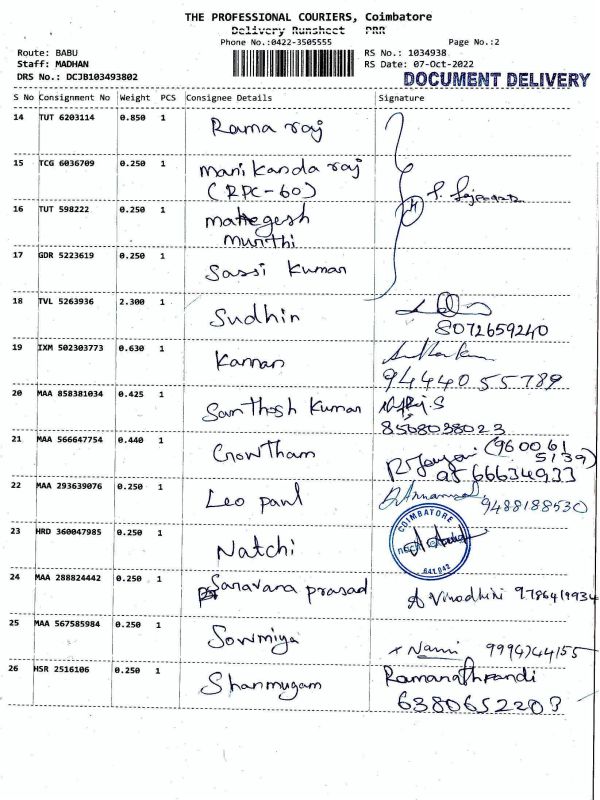 THE PROFESSIONAL COURIERS, Coimbatore
Delivery Runsheet PRR
Phone No.:0422-3505555 Page No.:2
Route: BABU RS No.: 1034938
Staff: MADHAN RS Date: 07-Oct-2022
DRS No.: DCJB103493802 DOCUMENT DELIVERY
S No Consignment No Weight PCS Consignee Details Signature
14 TUT 6203114 0.850 1 Rama raj
15 TCG 6036709 0.250 1 mani kanda raj
(RPC-60)
16 TUT 598222 0.250 1 mattegesh
murithi
17 GDR 5223619 0.250 1 Sassi Kumar
18 TVL 5263936 2.300 1 Sudhin
8072659240
19 IXM 502303773 0.630 1 Kannan
94440 55789
20 MAA 858381034 0.425 1 Santhosh Kumar
8568038023
21 MAA 566647754 0.440 1 Gowtham (960061
5139)
9566634933
22 MAA 293639076 0.250 1 Leo paul 9488188530
23 HRD 360047985 0.250 1 Natchi COIMBATORE
641 042
24 MAA 288824442 0.250 1 Saravana prasad A Vinodhini 9786419934
25 MAA 567585984 0.250 1 Sowmiya
26 HSR 2516106 0.250 1 Shanmugam
6380652203